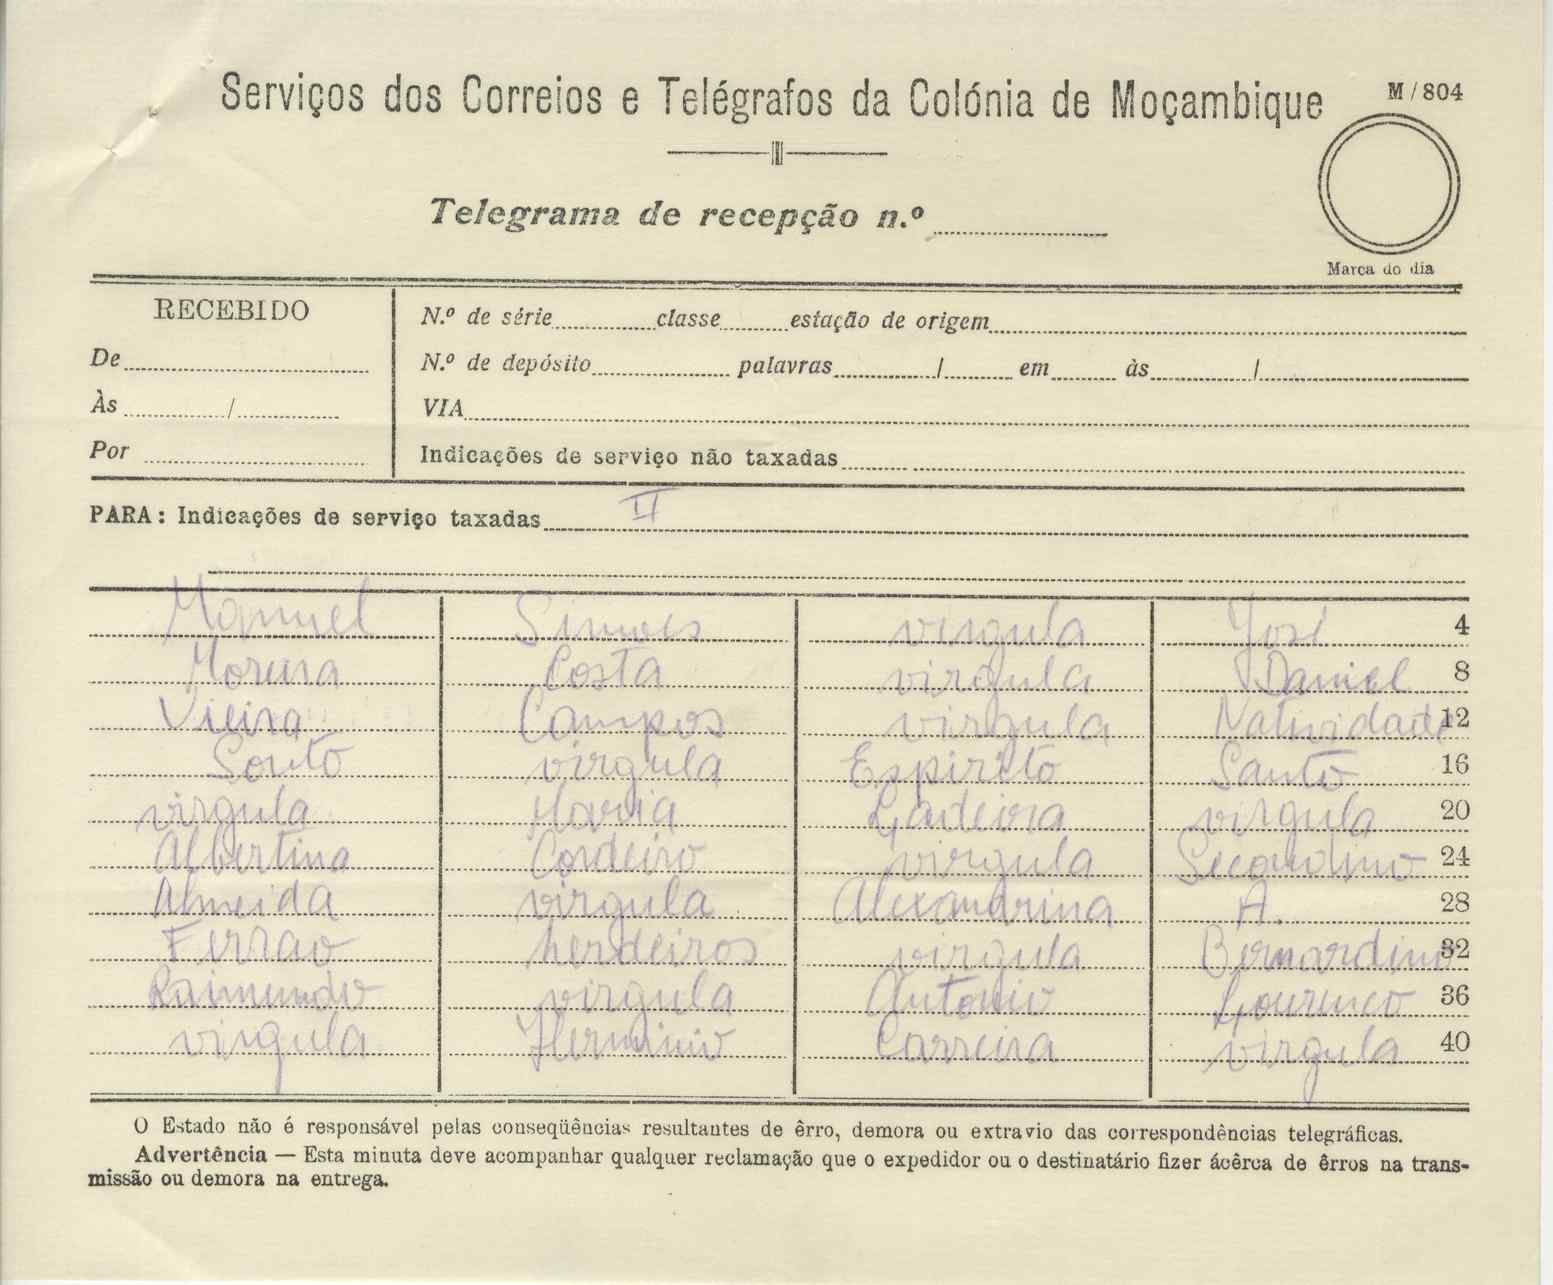 Serviços dos Correios e Telégrafos da Colónia de Moçambique
M/804
Telegrama de recepção n.º
Marca do dia
RECEBIDO
De
Às /
Por
N.º de série classe estação de origem
N.º de depósito palavras / em às /
VIA
Indicações de serviço não taxadas
PARA: Indicações de serviço taxadas II
Manuel Simoes virgula José 4
Moreira Costa virgula Daniel 8
Vieira Campos virgula Natividade 12
Souto virgula Espirito Santo 16
virgula Maria Ladeira virgula 20
Albertina Cordeiro virgula Secundino 24
Almeida virgula Alexandrina A. 28
Ferrao herdeiros virgula Bernardino 32
Raimundo virgula Antonio Lourenco 36
virgula Herminio Carreira virgula 40
O Estado não é responsável pelas conseqüências resultantes de êrro, demora ou extravio das correspondências telegráficas.
Advertência — Esta minuta deve acompanhar qualquer reclamação que o expedidor ou o destinatário fizer ácêrca de êrros na trans-
missão ou demora na entrega.